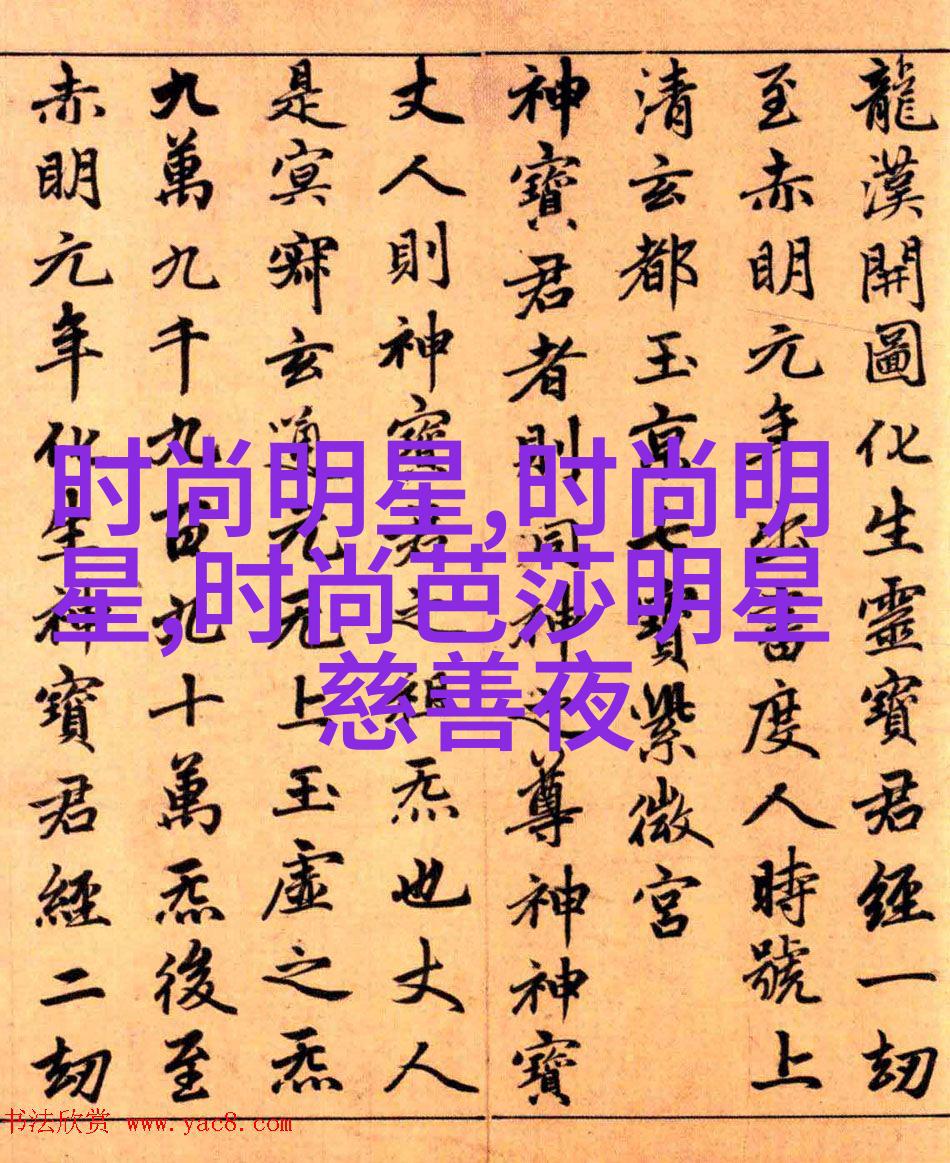 龍漢開圖化生靈寶君經一劫
至赤明元年出書度人時號上
清玄都玉京七寶紫微宮
神寶君者則洞神之尊神神寶
丈人則神寶君之祖炁也丈人
是冥寂玄通元无上玉虛之炁
九萬九千九百九十萬炁後至
赤明元年化生神寶君經二劫
时尚明星,时尚明
星,时尚芭莎明星
慈善夜
书法欣赏 www.yac8.com